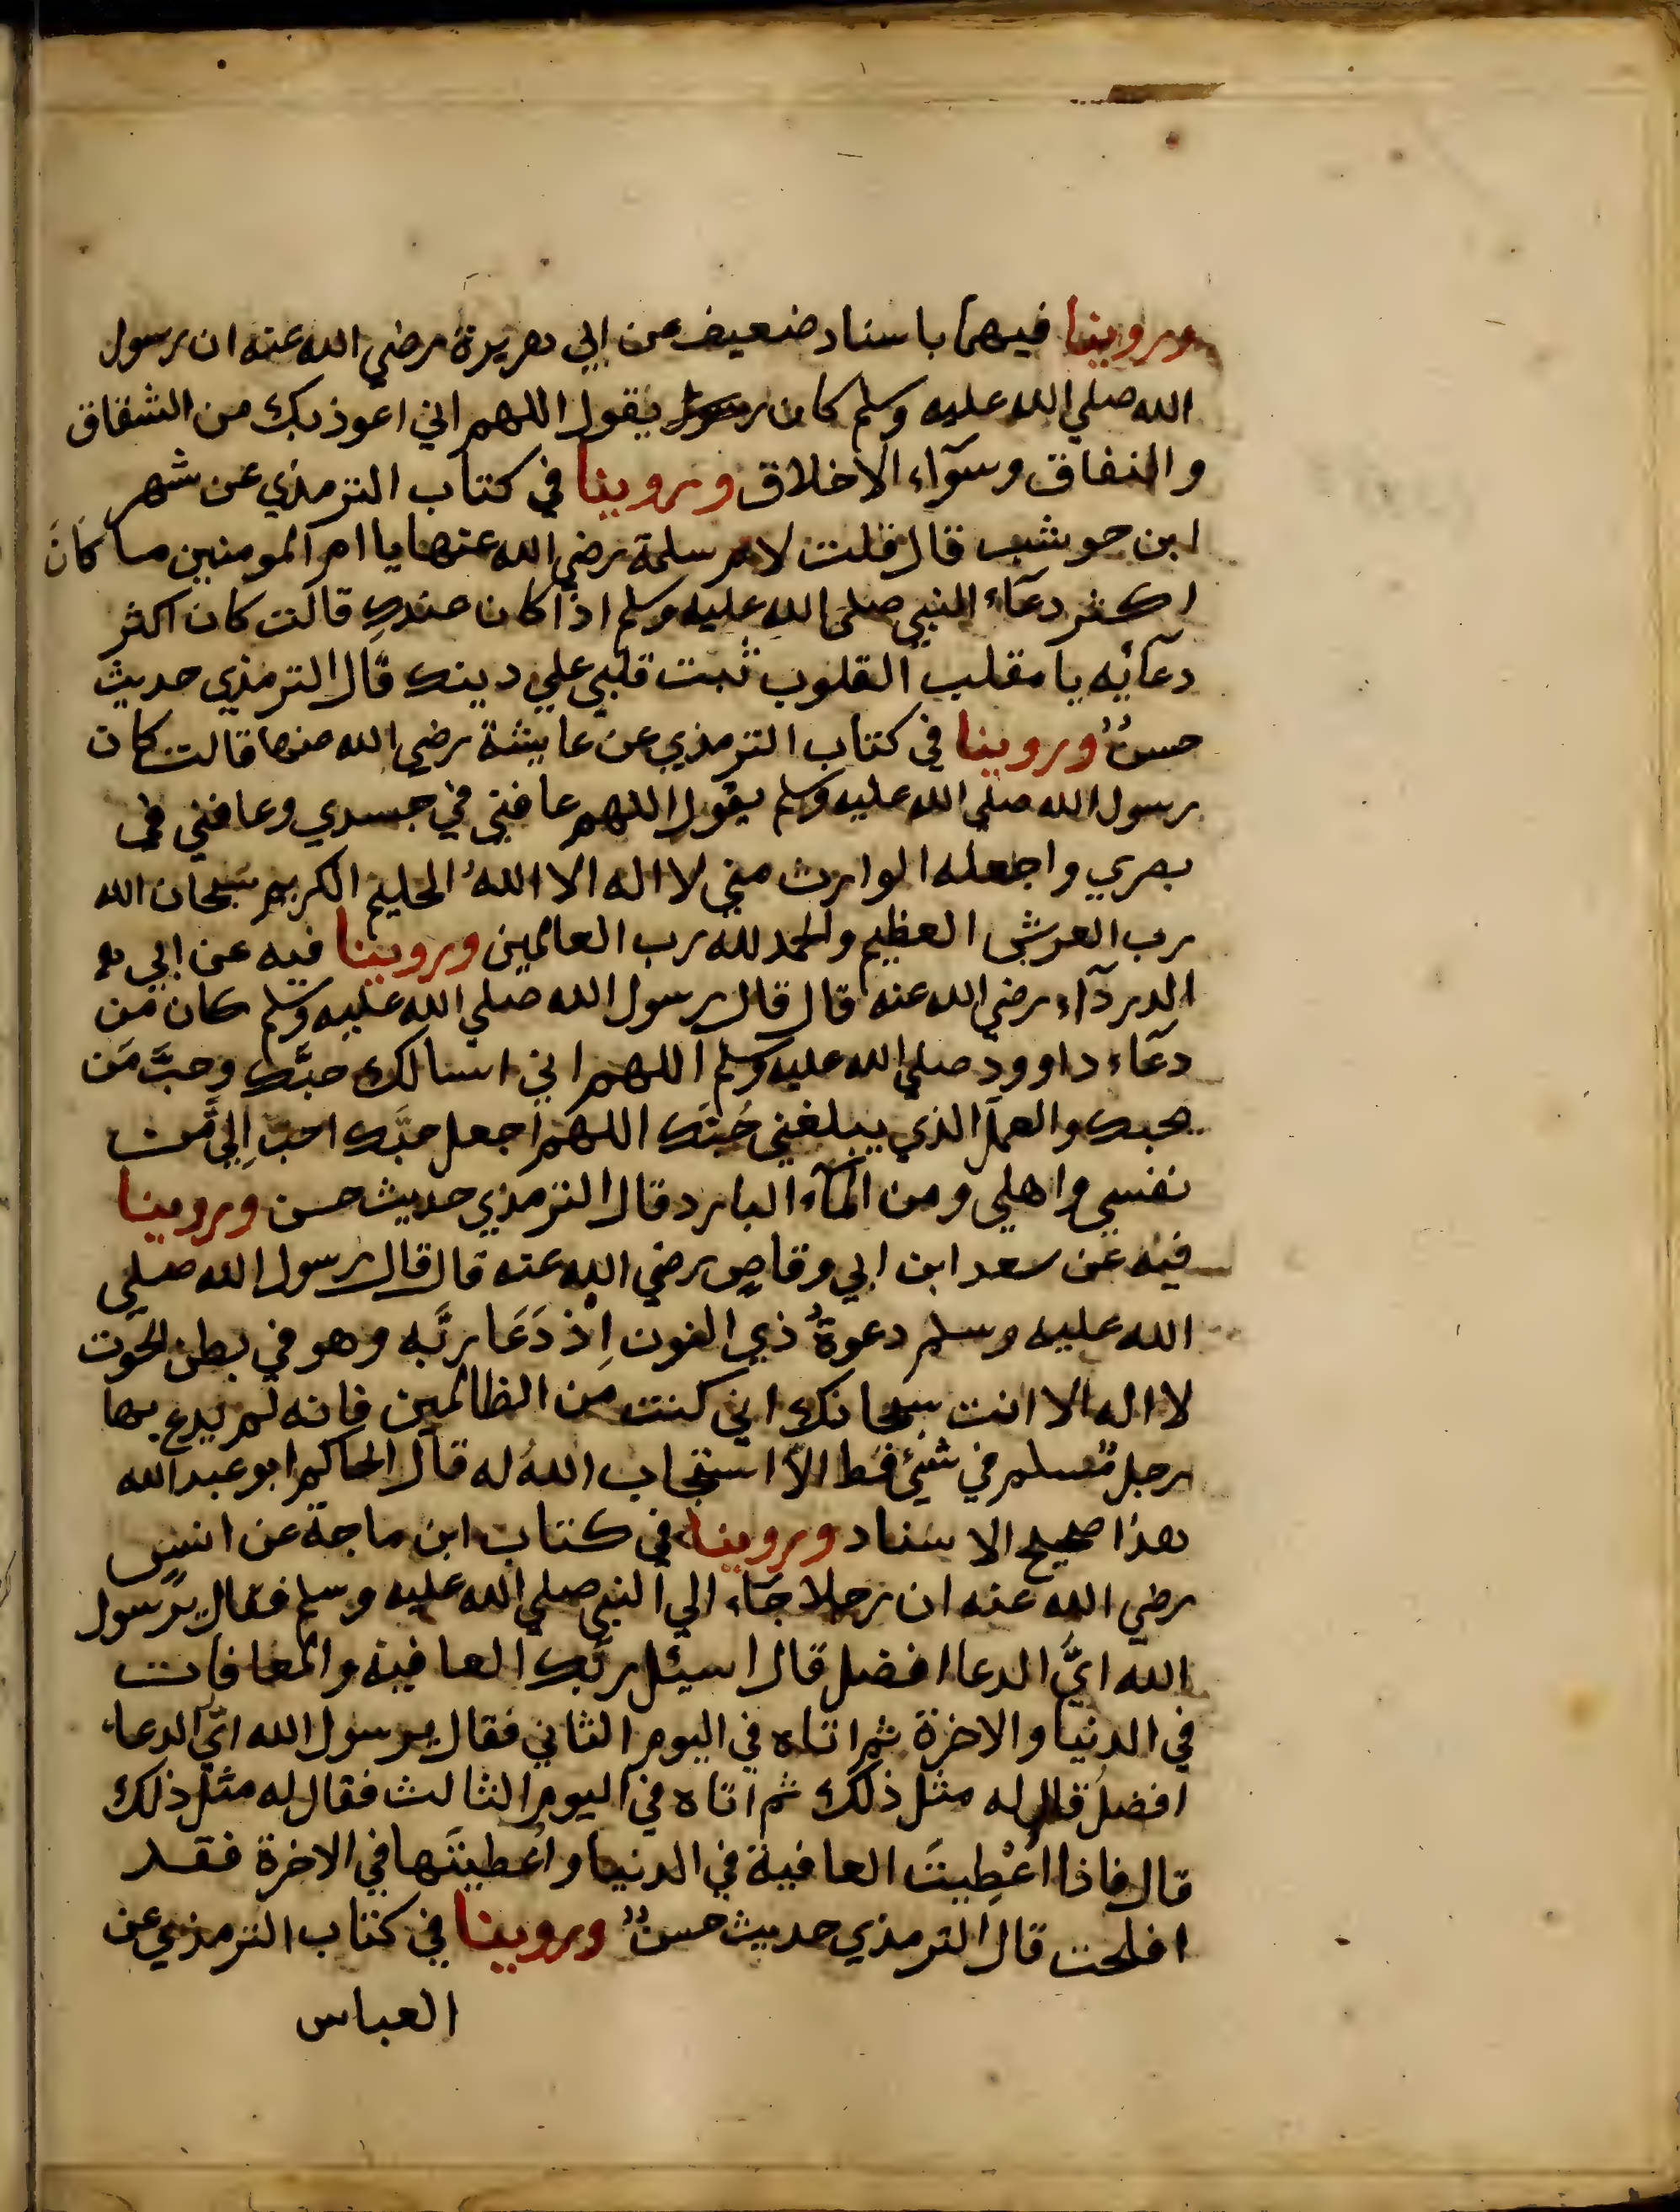 وروينا فيهما باسناد ضعيف عن ابي هريرة رضي الله عنه ان رسول
الله صلي الله عليه وسلم كان رسول يقول اللهم اني اعوذ بك من الشقاق
والنفاق وسوآء الاخلاق وروينا في كتاب الترمذي عن شهر
ابن حوشب قال قلت لام سلمة رضي الله عنها يا ام المومنين ما كان
اكثر دعآء النبي صلى الله عليه وسلم اذا كان عندكِ قالت كان اكثر
دعآئِه يا مقلب القلوب ثبت قلبي علي دينك قال الترمذي حديث
حسنٌ وروينا في كتاب الترمذي عن عايشة رضي الله عنها قالت كان
رسول الله صلي الله عليه وسلم يقول اللهم عافني في جسدي وعافني في
بصري واجعله الوارث مني لا اله الا اللهُ الحليم الكريم سبحان الله
رب العرش العظيم والحمد لله رب العالمين وروينا فيه عن ابي
الدردآء رضي الله عنه قال قال رسول الله صلي الله عليه وسلم كان من
دعآء داوود صلي الله عليه وسلم اللهم اني اسالك حبَّك وحبَّ مَن
يحبك والعمل الذي يبلغني حُبَّك اللهم اجعل حبَّك احبّ اِليَّ من
نفسي واهلي ومن المآء البارد قال الترمذي حديث حسن وروينا
فيه عن سعد ابن ابي وقاصٍ رضي الله عنه قال قال رسول الله صلي
الله عليه وسلم دعوةُ ذي النون اِذ دَعَا ربَّه وهو في بطن الحوت
لا اله الا انت سبحانك اني كنت من الظالمين فانه لم يدع بها
رجل مسلم في شيئٍ قط الاّ استجاب اللهُ له قال الحاكم ابو عبد الله
هذا صحيح الاسناد وروينا في كتاب ابن ماجة عن انسٍ
رضي الله عنه ان رجلا جآء الي النبي صلي الله عليه وسلم فقال يرسول
الله ايَّ الدعا افضل قال اسئل ربَّك العافية والمعافات
في الدنيا والاخرة ثم اتاه في اليوم الثاني فقال يرسول الله ايّ الدعاء
افضل قال له مثل ذلك ثم اتاه في اليوم الثالث فقال له مثل ذلك
قال فاذا اُعْطِيتَ العافية في الدنيا واُعطيتَها في الاخرة فقد
افلحت قال الترمذي حديث حسنٌ وروينا في كتاب الترمذي عن
العباس